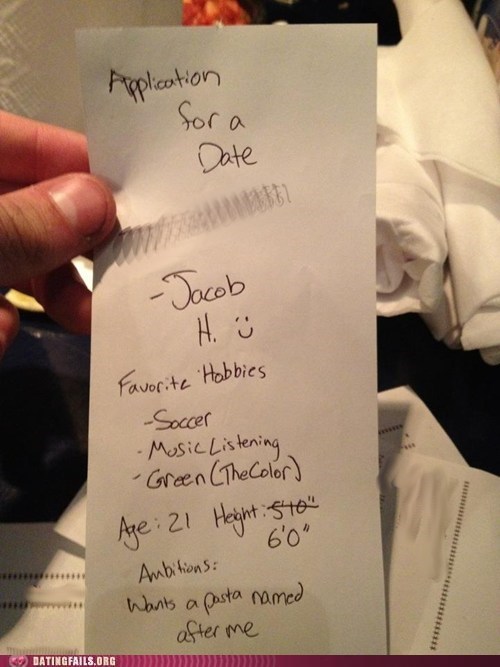 Application
for a
Date
-Jacob
H. :)
Favorite Hobbies
-Soccer
- Music Listening
- Green (The Color)
Age: 21 Height: 5'10"
6'0"
Ambitions:
Wants a pasta named
after me
DATINGFAILS.ORG